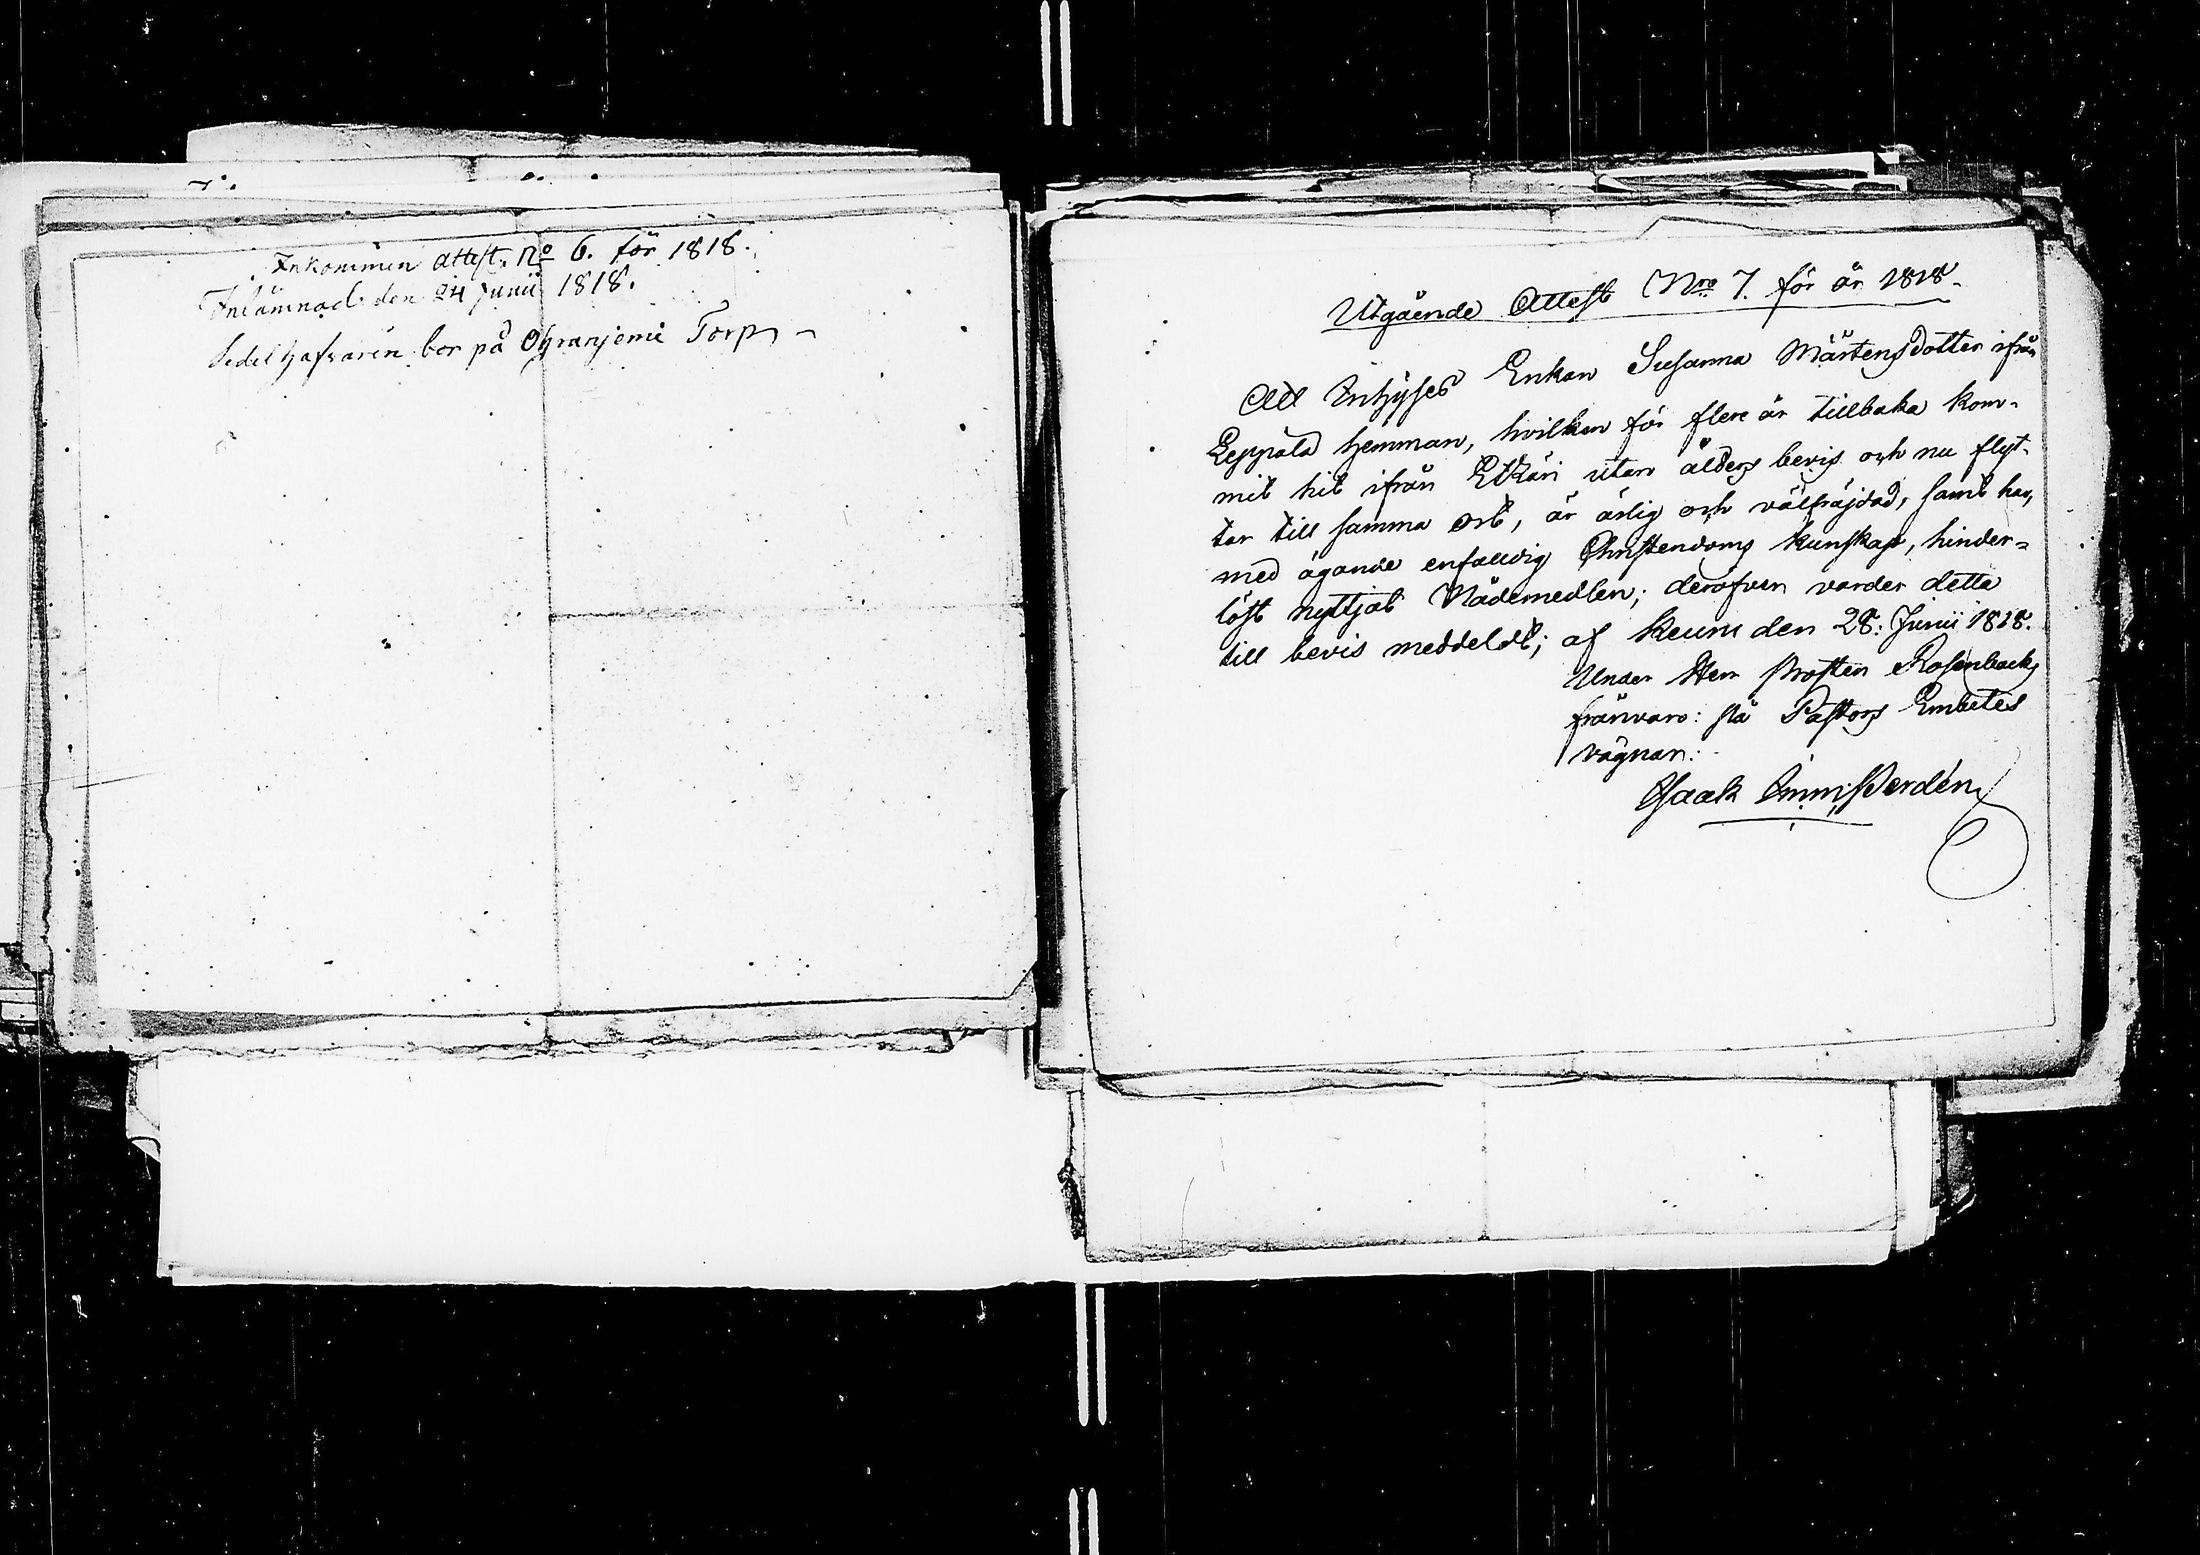 Inkommen attest. No 6. för 1818.
Inlämnad den 24 Junii 1818.
Sedelhafvarin bor på Ohranjemi Torp
Utgående Attest Nro 7. för år 1818.
Att Inhyses Enkan Susanna Mårtensdotter ifrån
Leppälä hemman, hvilken för flere år tillbaka kom-
mit hit ifrån Etzäri utan ålders bevis och nu flyt-
tar till samma ort, är ärlig och välfräjdad, samt har,
med ägande enfaldig Christendoms kunskap, hinder-
löst nyttjat Nådemedlen; deröfver varder detta
till bevis meddeldt; af Keuru den 28: Junii 1818.
Under Herr Prosten Rosenbacks
frånvaro: på Pastors Embetes
vägnar:
Isaak